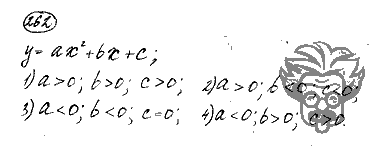 262
y = ax² + bx + c;
1) a > 0; b > 0; c > 0; 2) a > 0; b < 0; c < 0;
3) a < 0; b < 0; c = 0; 4) a < 0; b > 0; c > 0.